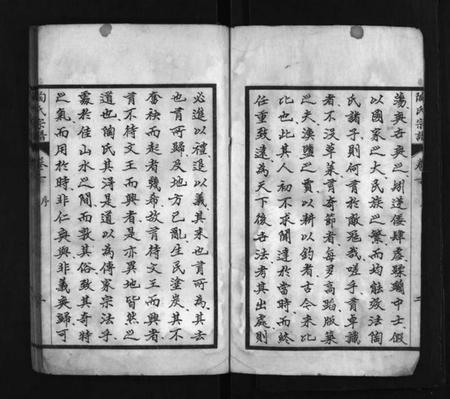 蕩與吾與之
以國家之大民族之繁而均能效法陶
氏諸子則何有於敵飛哉嗟乎有卓識
者不沒草萊有奇節者每身高蹈版築
之夫漁鹽之賈以耕以釣者古今來比
比也其人初不求聞達於當時而終
任重致遠為天下後吾法考其出處則
必進以禮退以義其來也有所為其去
也有所歸及地方已亂生民塗炭其不
奮袂而起者幾希故有待文王而興者
有不待文王而興者是亦異地皆然之
道也陶氏其得是道以為傳家宗法乎
處於佳山水之間而數其俗致其奇特
之氣而用於時非仁與與非義與歸可
陶氏宗譜
卷
序
陶氏宗譜